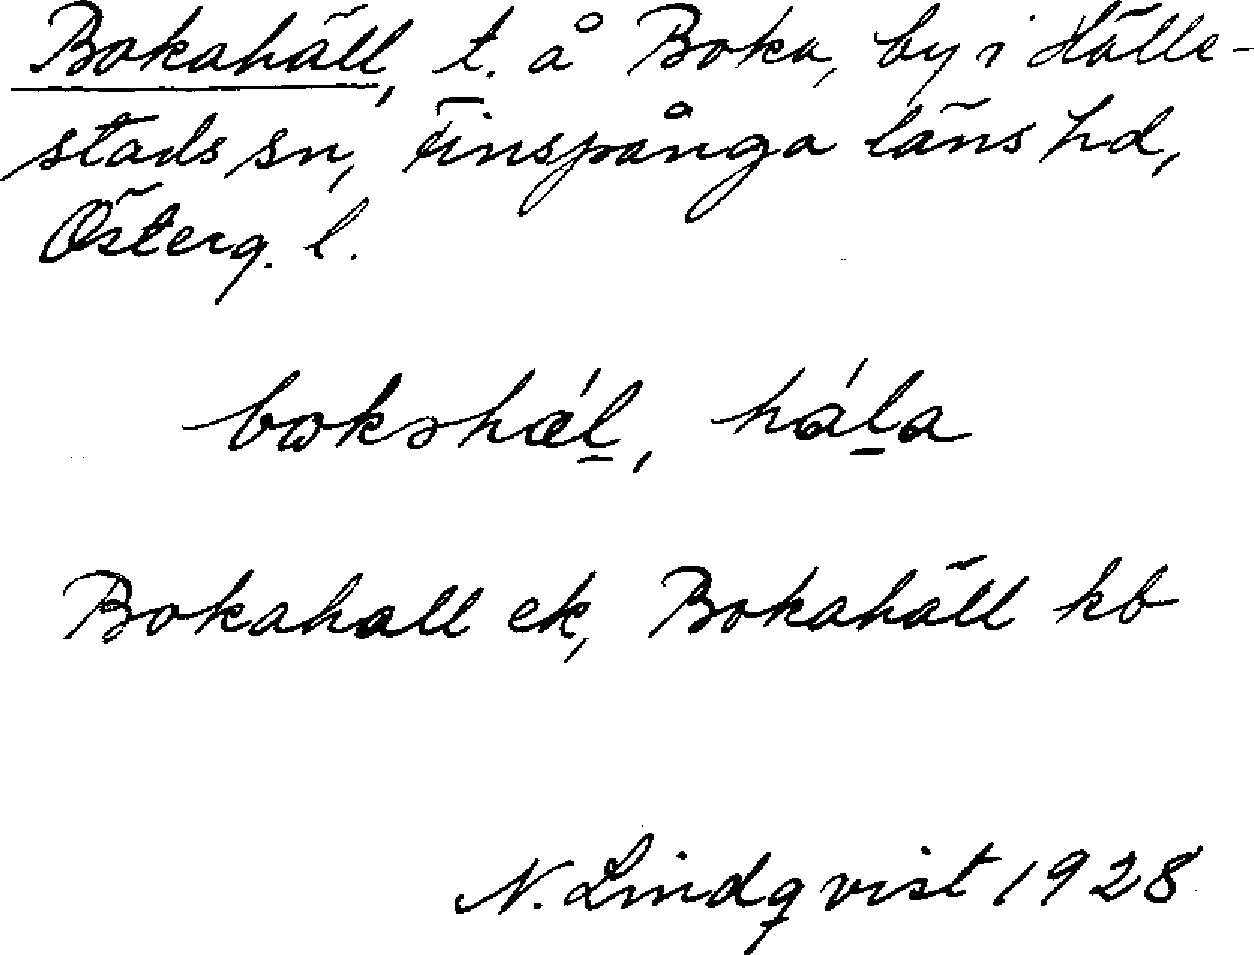 Bokahäll, t. å Boka, by i Hälle-
stads sn, Finspånga läns hd,
Österg. l.
bωkəhǽl, hála
Bokahall ek, Bokahäll kb
N. Lindqvist 1928